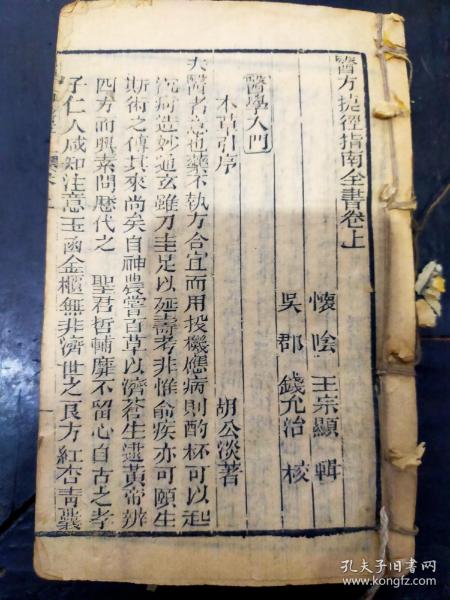 醫方捷徑指南全書卷上
懷陰 王宗顯 輯
吳郡 錢允治 核
醫學入門
本草引序
胡公淡著
夫醫者意也藥不執方合宜而用投機應病則酌杯可以起
沉疴造妙通玄雖刀圭足以延壽考非惟愈疾亦可頤生
斯術之傳其來尚矣自神農嘗百草以濟蒼生逮黃帝辨
四方而興素問歷代之 聖君哲輔靡不留心自古之孝
子仁人咸知注意玉函金櫃無非濟世之良方紅杏青囊
孔夫子旧书网
www.kongfz.com